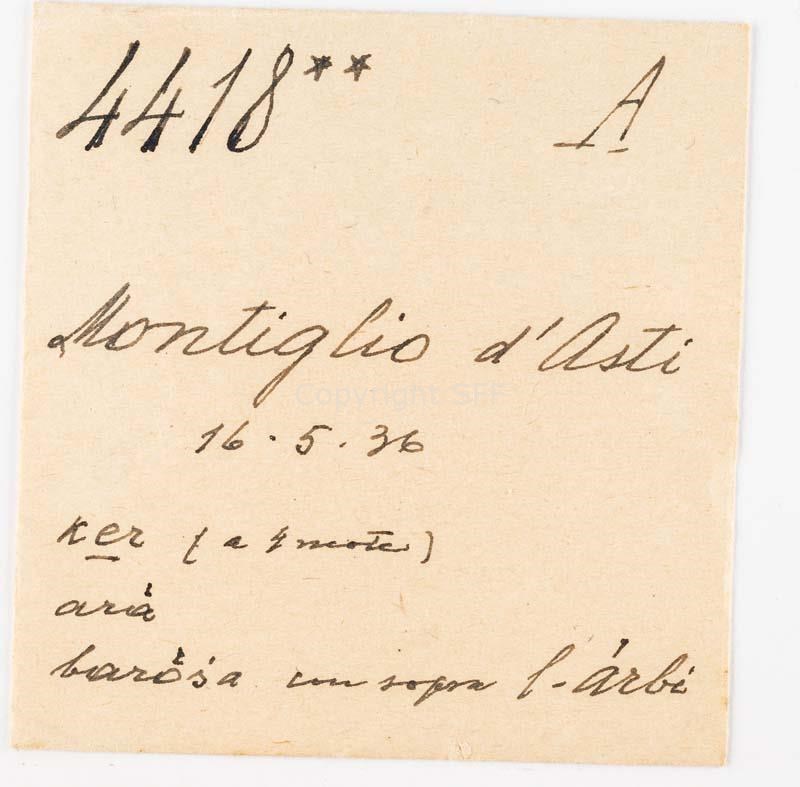 4418** A
Montiglio d'Asti
Copyright SFF
16.5.36
ker (a 4 ruote)
arà
baròśa con sopra l-árbi